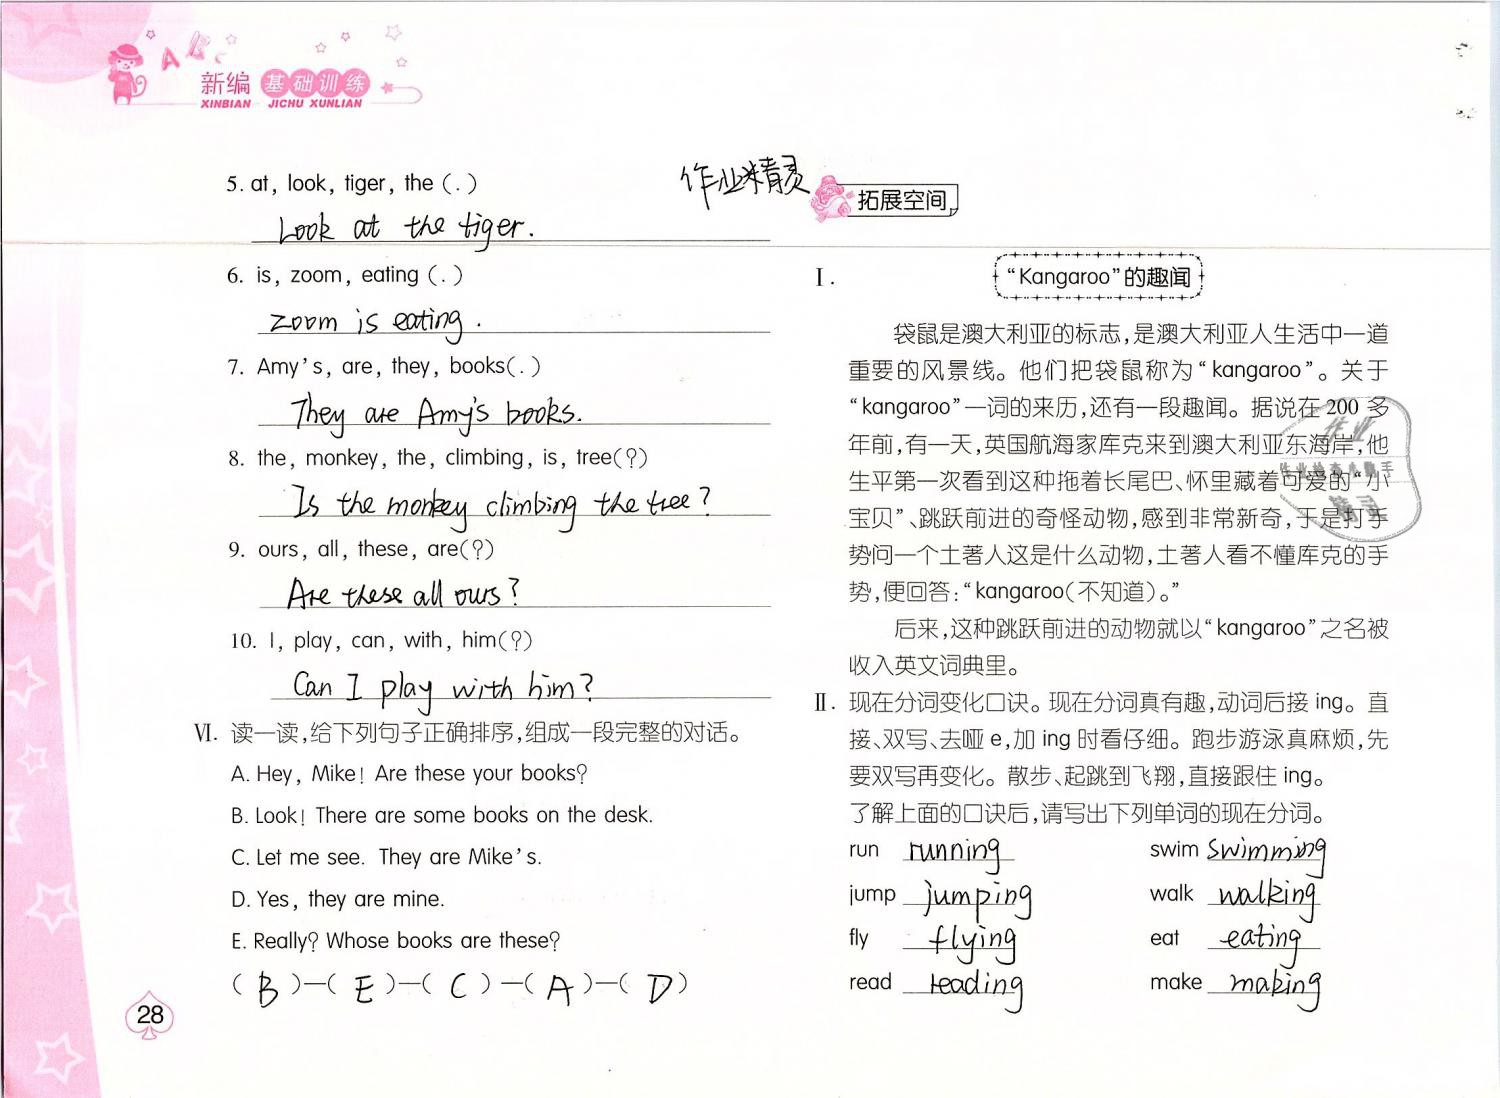 新编 基础训练
XINBIAN JICHU XUNLIAN
5. at, look, tiger, the (.)
Look at the tiger.
6. is, zoom, eating (.)
zoom is eating.
7. Amy's, are, they, books(.)
They are Amy's books.
8. the, monkey, the, climbing, is, tree(?)
Is the monkey climbing the tree?
9. ours, all, these, are(?)
Are these all ours?
10. I, play, can, with, him(?)
Can I play with him?
Ⅵ. 读一读,给下列句子正确排序,组成一段完整的对话。
A. Hey, Mike! Are these your books?
B. Look! There are some books on the desk.
C. Let me see. They are Mike's.
D. Yes, they are mine.
E. Really? Whose books are these?
(B)—(E)—(C)—(A)—(D)
28
作业精灵
拓展空间
Ⅰ. “Kangaroo”的趣闻
袋鼠是澳大利亚的标志,是澳大利亚人生活中一道
重要的风景线。他们把袋鼠称为“kangaroo”。关于
“kangaroo”一词的来历,还有一段趣闻。据说在 200 多
年前,有一天,英国航海家库克来到澳大利亚东海岸,他
生平第一次看到这种拖着长尾巴、怀里藏着可爱的“小
宝贝”、跳跃前进的奇怪动物,感到非常新奇,于是打手
势问一个土著人这是什么动物,土著人看不懂库克的手
势,便回答:“kangaroo(不知道)。”
后来,这种跳跃前进的动物就以“kangaroo”之名被
收入英文词典里。
Ⅱ. 现在分词变化口诀。现在分词真有趣,动词后接 ing。直
接、双写、去哑 e,加 ing 时看仔细。跑步游泳真麻烦,先
要双写再变化。散步、起跳到飞翔,直接跟住 ing。
了解上面的口诀后,请写出下列单词的现在分词。
run running swim swimming
jump jumping walk walking
fly flying eat eating
read reading make making